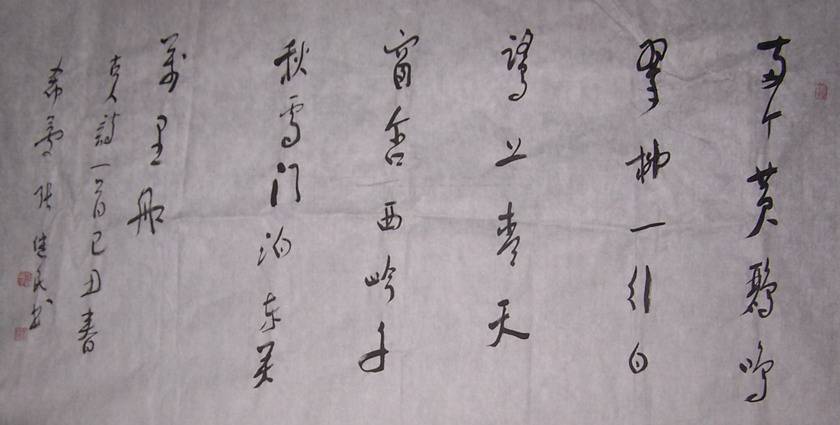 两个黄鹂鸣
翠柳一行白
鹭上青天
窗含西岭千
秋雪门泊东吴
万里船
古人詩一首己丑春